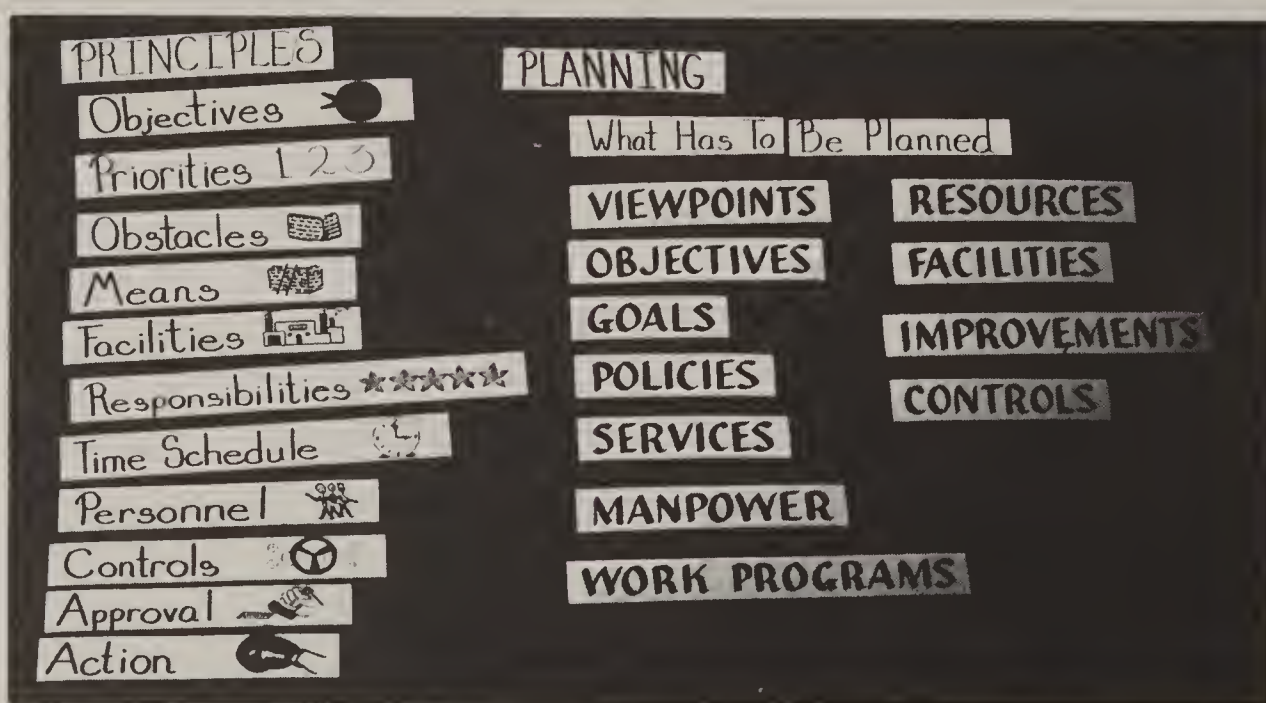 PRINCIPLES
Objectives
Priorities 1 2 3
Obstacles
Means
Facilities
Responsibilities
Time Schedule
Personnel
Controls
Approval
Action
PLANNING
What Has To Be Planned
VIEWPOINTS
OBJECTIVES
GOALS
POLICIES
SERVICES
MANPOWER
WORK PROGRAMS
RESOURCES
FACILITIES
IMPROVEMENTS
CONTROLS